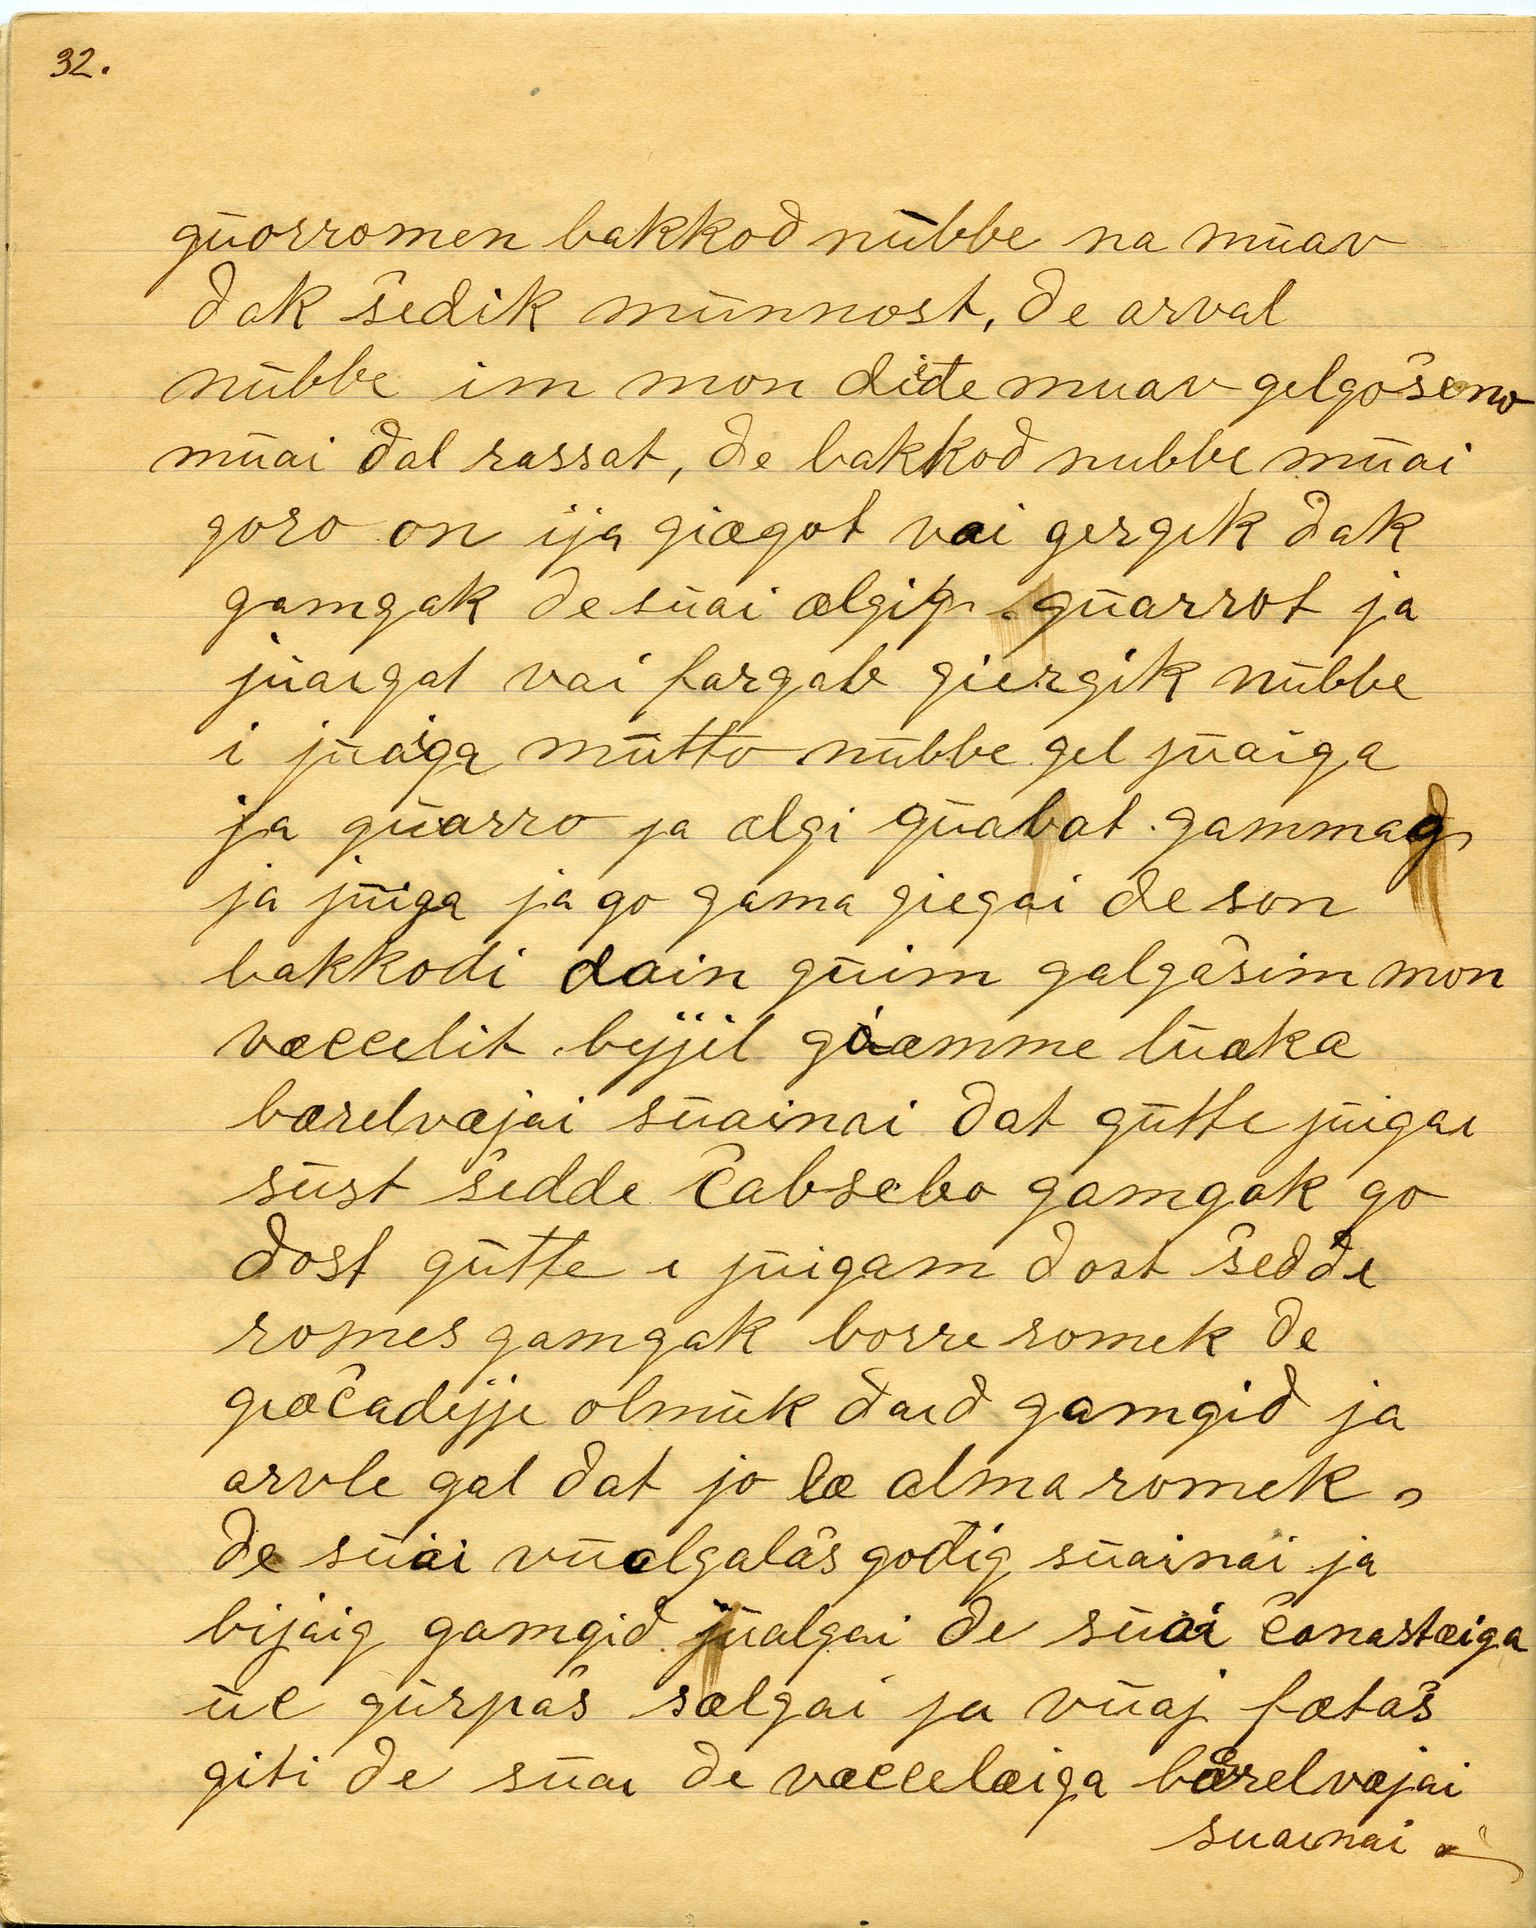 32.
gūorromen bakkod nūbbe na mūav
dak šedik mūnnost, de arval
nūbbe im mon diđe muav gelgošeno
mūai dal rassat, de bakkod nubbe mūai
goro on ija giægot vai gergek dak
gamgak de sūai ælgig gūarrot ja
jūaigat vai fargab giergik nūbbe
i jūaiga mūtto nūbbe gel jūaiga
ja gūarro ja ælgi gūabat gammag
ja jūiga ja go gama giegai de son
bakkodi dain gūim galgašim mon
væccelit bijjil giæmme lūaka
bærelvæjai sūainai dat gūtte jūigai
sūst šedde čabsebo gamgak go
dost gūtte i jūigam dost šedde
romes gamgak borre romek de
giæčadijje olmūk daid gamgid ja
arvle gal dat jo læ alma romek,
de sūai vūolgalašgođig sūainai ja
bijaig gamgid jūalgai de sūai čonastæiga
ūc gūrpaš sælgai ja vūaj fætaš
giti de sūai de væccelæiga bærelvæjai
suainai